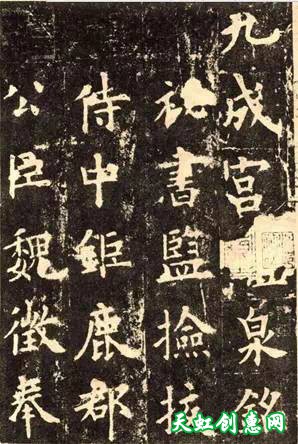 九成宮泉銘
祕書監撿挍
侍中鉅鹿郡
公臣魏徵奉
天虹创意网